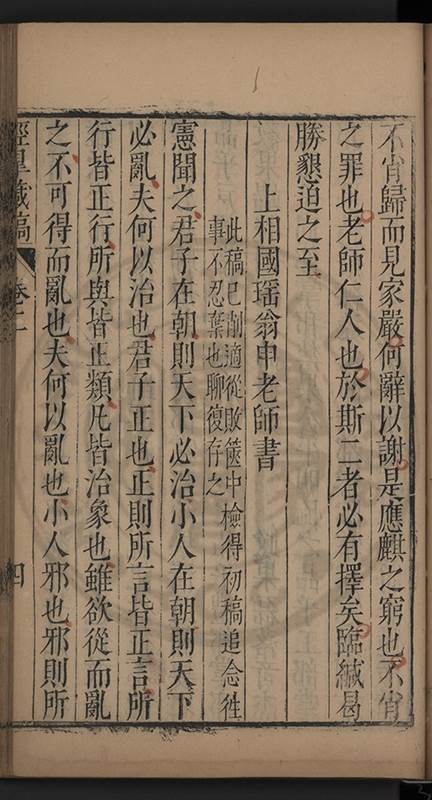 不肖歸而見家嚴何辭以謝是應麒之窮也不肖
之罪也老師仁人也於斯二者必有擇矣臨緘曷
勝懇迫之至
上相國瑤翁申老師書
此稿已削適從敗篋中檢得初稿追念徃
事不忍棄也聊復存之
憲聞之君子在朝則天下必治小人在朝則天下
必亂夫何以治也君子正也正則所言皆正言所
行皆正行所與皆正類凡皆治象也雖欲從而亂
之不可得而亂也夫何以亂也小人邪也邪則所
涇臯藏稿
卷二
四